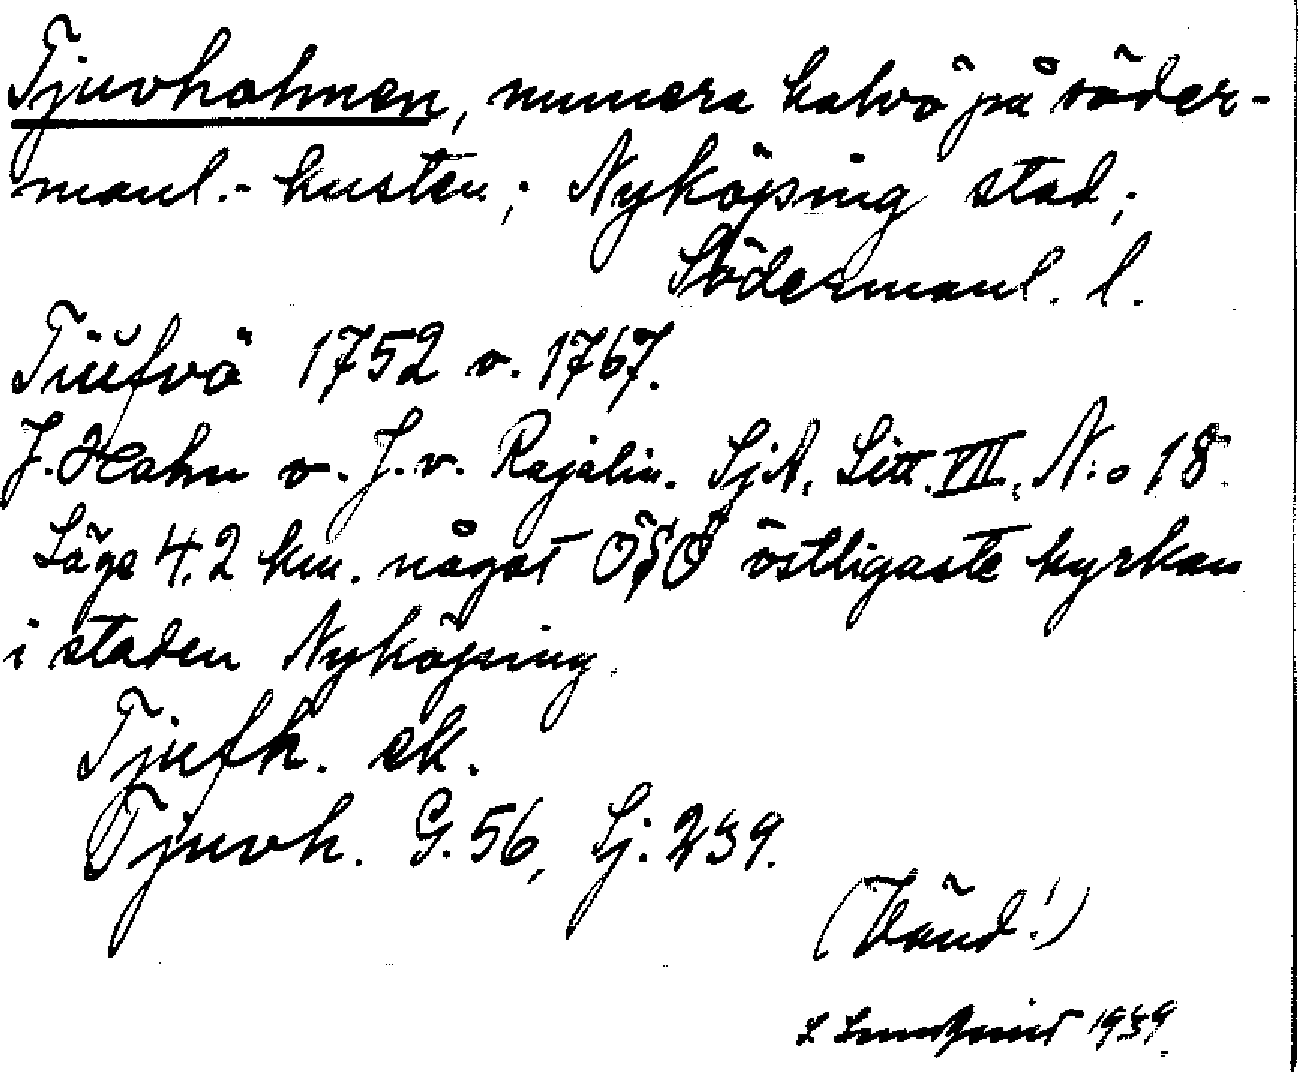 Tjuvholmen, numera halvö på söder-
manl.-kusten; Nyköping stad;
Södermanl. l.
Tiŭfvö 1752 o. 1767.
J. Hahn o. J. v. Rajalin. SjA, Litt. VII, N:o 18
Läge 4,2 km. något OSO östligaste kyrkan
i staden Nyköping.
Tjufh. ek.
Tjuvh. G. 56, Sj. 239.
(Vänd!)
1939